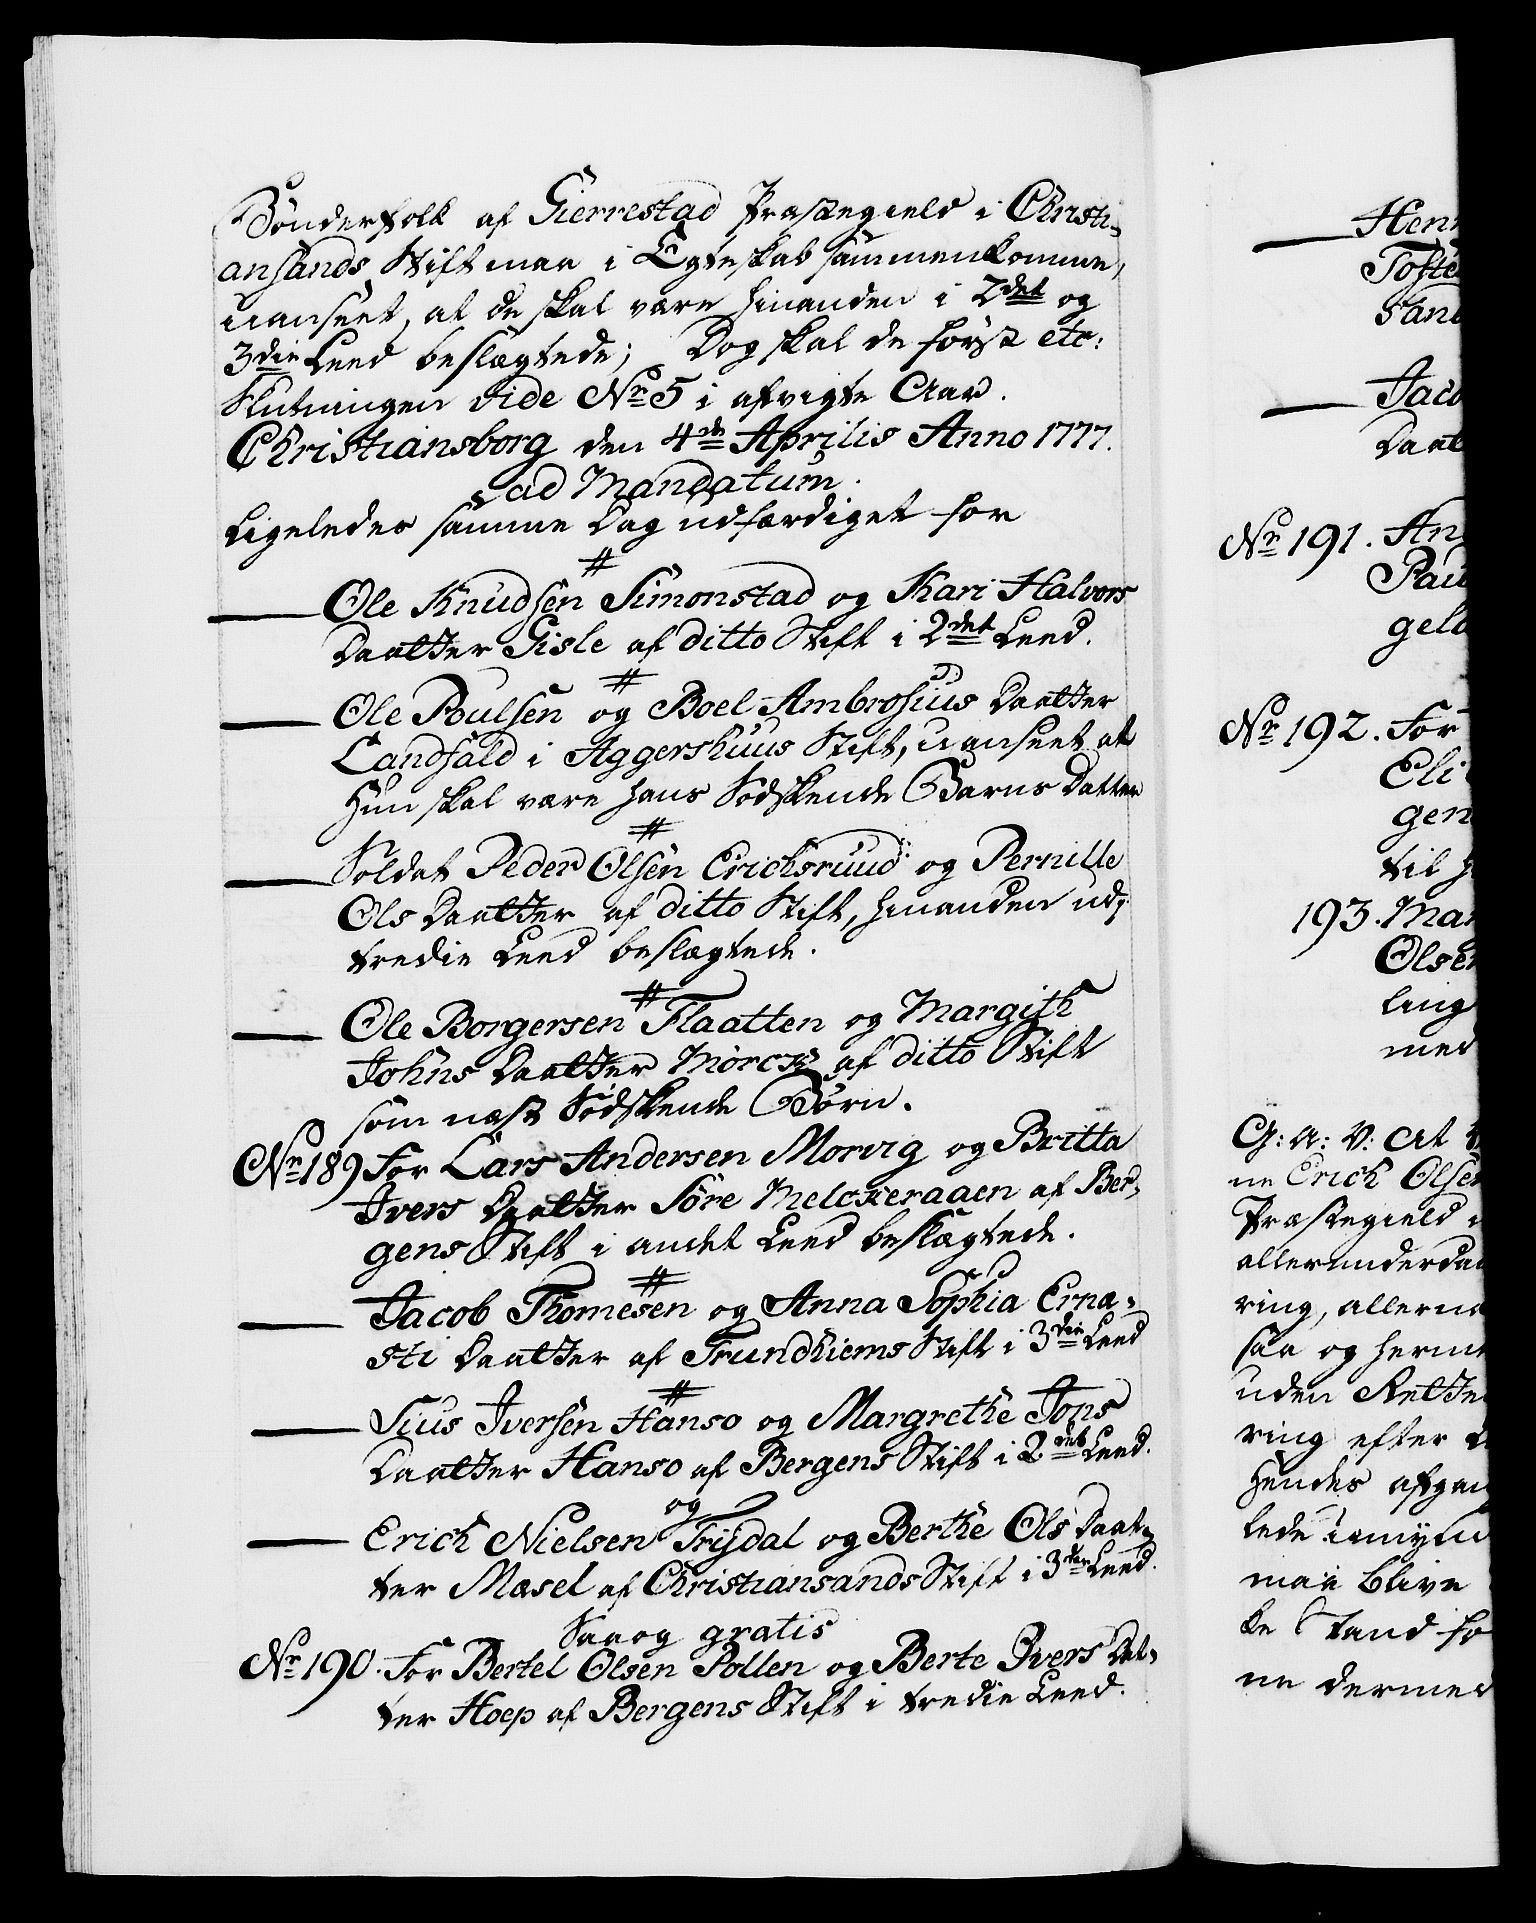 Bönderfolk af Gierrestad Præstegield i Christi-
ansands Stift maa i Egteskab sammenkomme,
uanseet, at de skal være hinanden i 2det og
3die Leed beslægtede; Dog skal de først etc:
Slutningen vide No 5 i afvigte Aar.
Christiansborg den 4de Aprilis Anno 1777.
ad Mandatum.
Ligeledes samme Dag udfærdiget for
#
Ole Knudsen Simonstad og Kari Halvors
Daatter Gisle af ditto Stift i 2det Leed.
#
Ole Poulsen og Boel Ambrosius Daatter
Landfald i Aggershuus Stift, uanseet at
Hun skal være hans Sødskende Barns Datter
#
Soldat Peder Olsen Ericksruud og Pernille
Ols Daatter af ditto Stift, hinanden udj
tredie Leed beslægtede.
#
Ole Borgersen Flaatten og Margith
Johns Daatter Mörck af ditto Stift
som næst Sødskende Börn.
No 189 For Lars Andersen Morvig og Britta
Ivers Daatter Söre Melckeraaen af Ber-
gens Stift i andet Leed beslægtede.
#
Jacob Thomesen og Anna Sophia Erna-
sti Daatter af Trundhiems Stift i 3die Leed
#
Sius Iversen Hanso og Margrethe Jons
Daatter Hanso af Bergens Stift i 2det Leed.
og
Erich Nielsen Trijdal og Berthe Ols Daat-
ter Mæsel af Christiansands Stift i 3die Leed.
Saa og gratis
No 190. For Bertel Olsen Pollen og Berte Ivers Dat-
ter Hoep af Bergens Stift i tredie Leed.
Tofte
Jaco
Daat
No 191. An
Pau
geld
No 192. For
Eli
gen
til
193. Mar
Olsen
ling
med
G: A: V: At
ne Erick Olsen
Præstegield
allerunderda
ring, allerna
saa og herme
uden Rette
ring efter
Hendes afgan
lede
maa blive
ke Stand fo
ne dermed